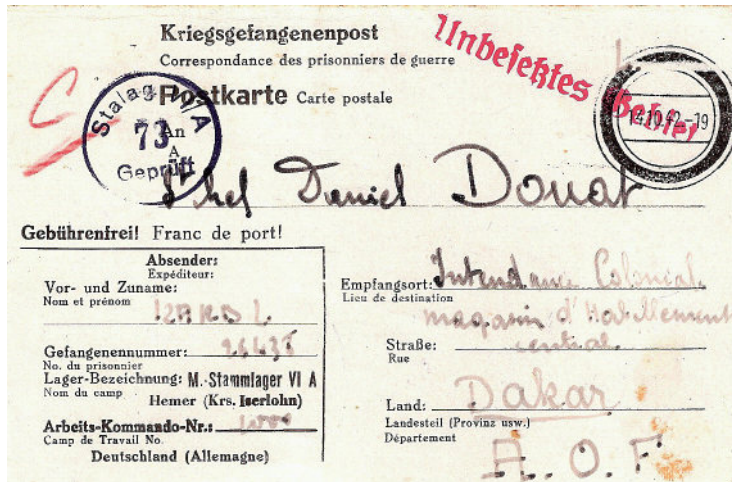 Kriegsgefangenenpost
Correspondance des prisonniers de guerre
Unbesetztes Gebiet
Postkarte Carte postale
Stalag VI A
73
An
A
Geprüft
14.10.42-19
Daniel Donat
Gebührenfrei! Franc de port!
Absender:
Expéditeur:
Vor- und Zuname:
Nom et prénom
Gefangenennummer:
No. du prisonnier
Lager-Bezeichnung: M.-Stammlager VI A
Nom du camp
Hemer (Krs. Iserlohn)
Arbeits-Kommando-Nr.:
Camp de Travail No.
Deutschland (Allemagne)
Empfangsort: Intendance Coloniale
Lieu de destination
magasin d'Habillement
Straße: central
Rue
Land: Dakar
Landesteil (Provinz usw.)
Département
A. O. F.